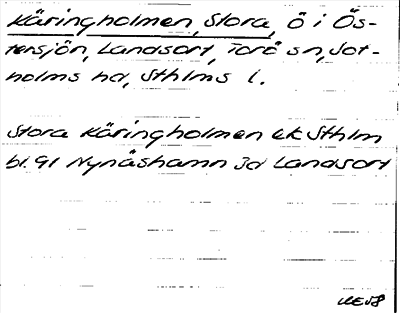 Käringholmen, Stora, ö i Ös-
tersjön, Landsort, Torö sn, Sot-
holms hd, Sthlms l.
Stora Käringholmen ek Sthlm
bl. 91 Nynäshamn 3d Landsort